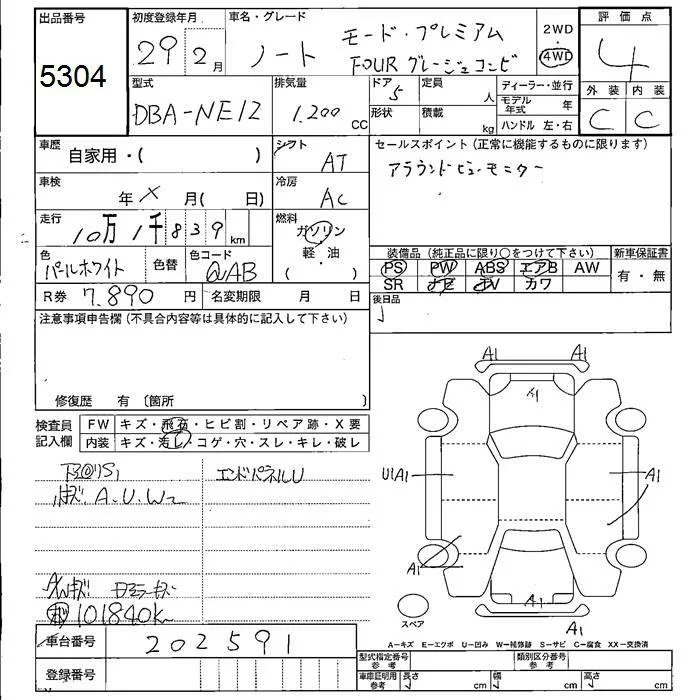 出品番号
5304
初度登録年月
29 2月
車名・グレード
ノート
モード・プレミアム
FOUR グレージュコンビ
2WD
・
4WD
評価点
4
外装 内装
C C
型式
DBA-NE12
排気量
1.200 CC
ドア 5
定員 人
形状
積載 kg
ディーラー・並行
モデル年式 年
ハンドル 左・右
車歴
自家用・( )
シフト
AT
セールスポイント(正常に機能するものに限ります)
アラウンドビューモニター
車検
年 X 月( 日)
冷房
AC
走行
10万1千839 km
燃料
ガソリン
軽・油
( )
色
パールホワイト
色替
色コード
@AB
装備品(純正品に限り○をつけて下さい)
PS PW ABS エアB AW
SR ナビ TV カワ
新車保証書
有・無
R券 7.890 円
名変期限 月 日
後日品
注意事項申告欄(不具合内容等は具体的に記入して下さい)
修復歴 有 〔箇所 〕
検査員記入欄
FW キズ・飛石・ヒビ割・リペア跡・X要
内装 キズ・汚レ・コゲ・穴・スレ・キレ・破レ
エンドパネルU
A.U.W2
101840K
A1 A1
A1
U1A1
A1
A1
A1
A1
スペア
A=キズ E=エクボ U=凹み W=補修跡 S=サビ C=腐食 XX=交換済
車台番号
202591
登録番号
型式指定番号
参考
類別区分番号
参考
車庫証明用
参考
長さ cm
幅 cm
高さ cm